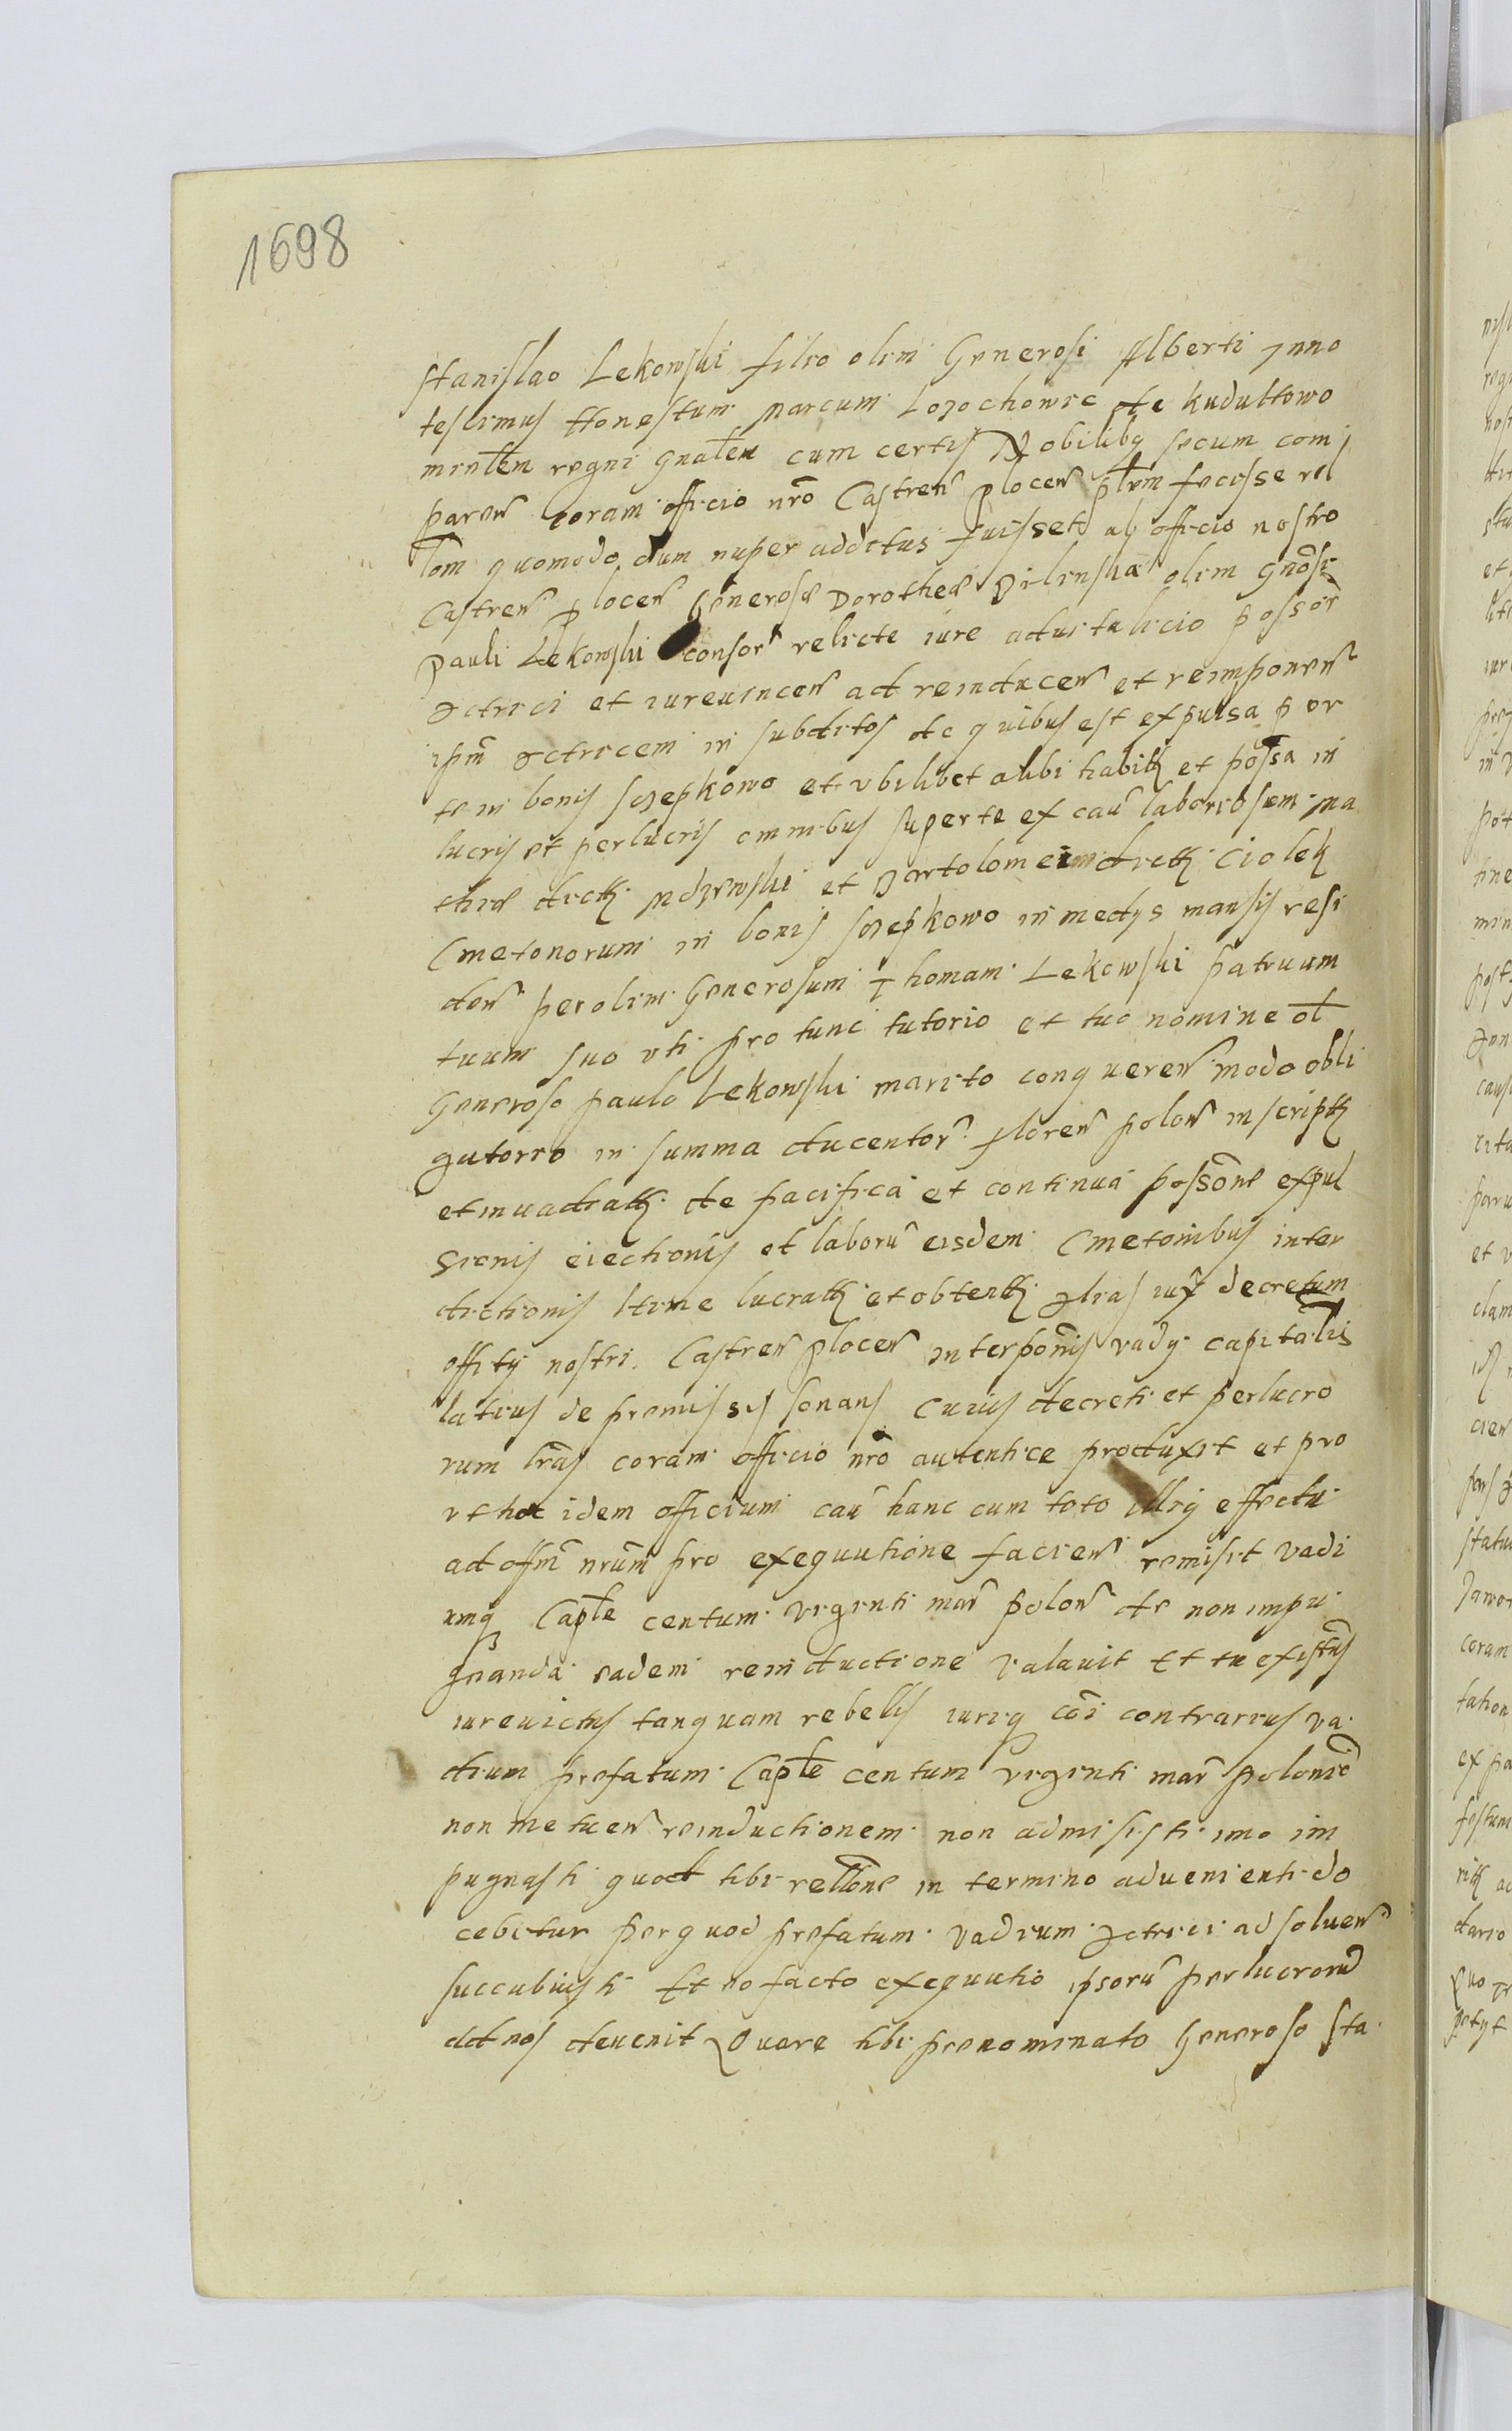 1698
Stanislao Lekowski filio olim Generosi Alberti Inno
tescimus Honestum Marcum Lozochowic de Kudultowo
minlem regni gnalem cum certis Nobilibq secum com
paren coram officio nro Castren Plocen plnm fecisse rel
lom quomodo dum nuper additus fuisset ab officio nostro
Castren Plocen Generosæ Dorotheæ Pilinskæ olim gnosi
Pauli Lekowski consor relicte iure aduitalicio possor
Actrici et iurevincen ad reinducen et reimponen
ipm Actricem in subditos de quibus est expulsa per
te in bonis Szepkowo et ubilibet alibi habitt et possa in
lucris et perlucris omnibus super te ex cau laboriosum Ma
thiæ dictt et Bartolomeum dictt Ciolek
Cmetonorum in bonis Szepkowo in medys mansis resi
den per olim Generosum Thomam Lekowski patruum
tuum suo uti pro tunc tutorio et tuo nomine ol
Generoso Paulo Lekowski marito conqueren modo obli
gatorio in summa ducentor floren polon inscriptt
et invadiatt de pacifica et continua possone expul
sionis eiectionis et laboru eisdem Cmetonibus inter
dictionis ltime lucratt et obtentt Alias iux decretum
offity nostri Castren Plocen interponis vady capitalis
latius de premissis sonans Cuius decreti et perlucro
rum lras coram officio nro autentice produxit et pro
ut hoc idem officium cau hanc cum toto illiq effectu
ad offm nrum pro exequutione facien remisit vadi
umq Caple centum viginti mar polon de non impu
gnanda eadem reinductione valavit Et tu existens
iurevictus tanquam rebellis iuriq coi contrarius va
dium prefatum Caple centum viginti mar polonic
non metuen reinductionem non admisisti imo im
pugnasti quod tibi rellone in termino advenienti do
cebitur per quod prefatum vadium Actrici ad soluen
succubuisti Et eo facto exequutio ipsoru perlucrorum
ad nos devenit Quare tibi prenominato Generoso Sta